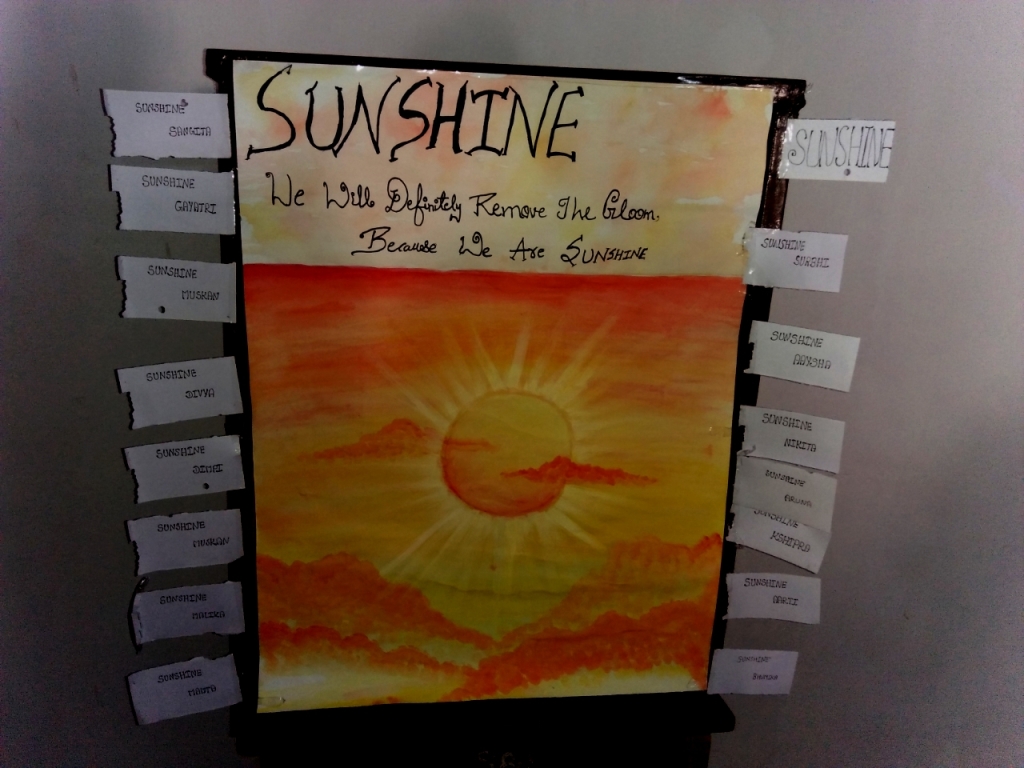 SUNSHINE
We Will Definitely Remove The Gloom,
Because We Are SUNSHINE
SUNSHINE
SANGITA
SUNSHINE
GAYATRI
SUNSHINE
MUSKAN
SUNSHINE
DIVYA
SUNSHINE
SUNSHINE
MUSKAN
SUNSHINE
MALIKA
SUNSHINE
MAMTA
SUNSHINE
SUNSHINE
SURBHI
SUNSHINE
AAYSHA
SUNSHINE
NIKITA
SUNSHINE
SUNSHINE
SUNSHINE
AARTI
SUNSHINE